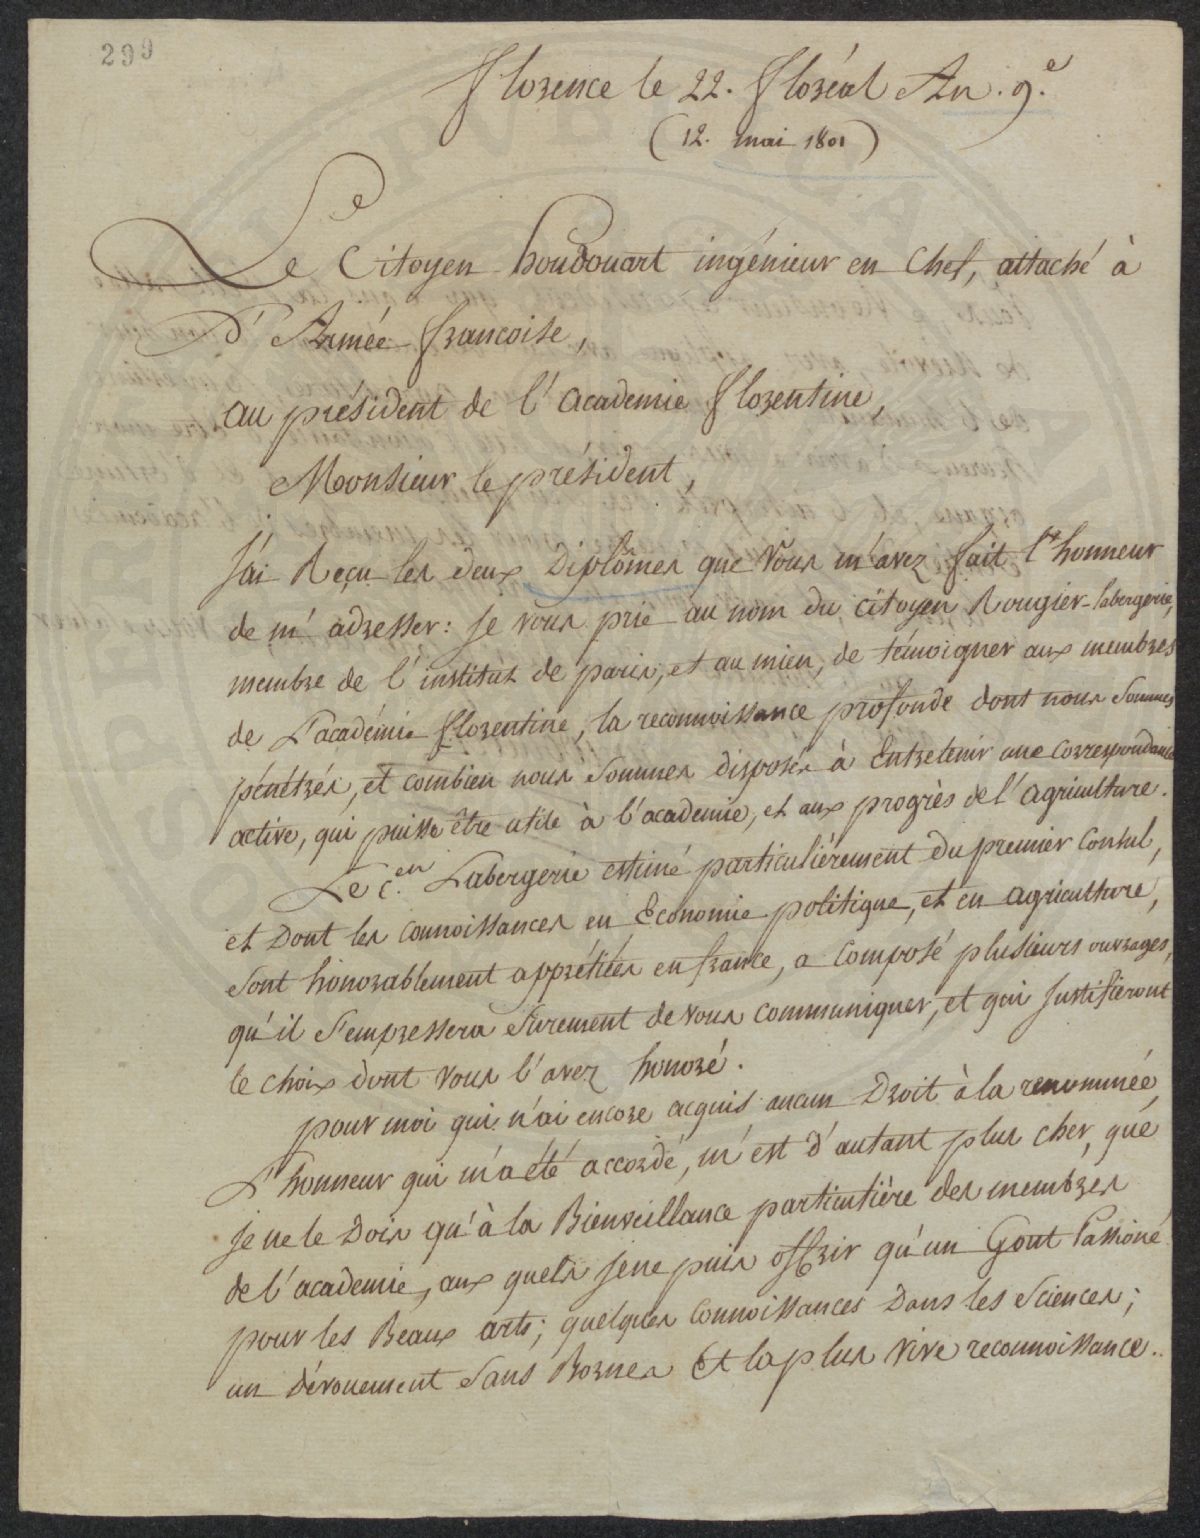 299
Florence le 22. floréal An. 9.e
(12. mai 1801)
Le Citoyen houdouart ingénieur en chef, attaché à
l'Armée françoise,
au président de l'academie florentine,
Monsieur le président,
J'ai Reçu les deux Diplômes que vous m'avez fait l'honneur
de m'adresser: je vous prie au nom du citoyen Rougier-labergerie,
membre de l'institut de paris, et au mien, de témoigner aux membres
de L'académie florentine, la reconnoissance profonde dont nous sommes
pénétrés, et combien nous sommes disposés à Entretenir une correspondance
active, qui puisse être utile à l'academie, et aux progrès de l'agriculture.
Le C.en Labergerie estimé particulièrement du premier Consul,
et Dont les connoissances en Economie politique, et en agriculture,
sont honorablement appréciées en france, a composé plusieurs ouvrages,
qu'il s'empressera surement de vous communiquer, et qui justifieront
le choix dont vous l'avez honoré.
pour moi qui n'ai encore acquis aucun Droit à la renommée,
L'honneur qui m'a été accordé, m'est d'autant plus cher, que
je ne le Dois qu'à la Bienveillance particulière des membres
de l'academie, aux quels je ne puis offrir qu'un Gout Passioné
pour les Beaux arts; quelques connoissances Dans les sciences;
un dévouement sans Bornes Et la plus vive reconnoissance..